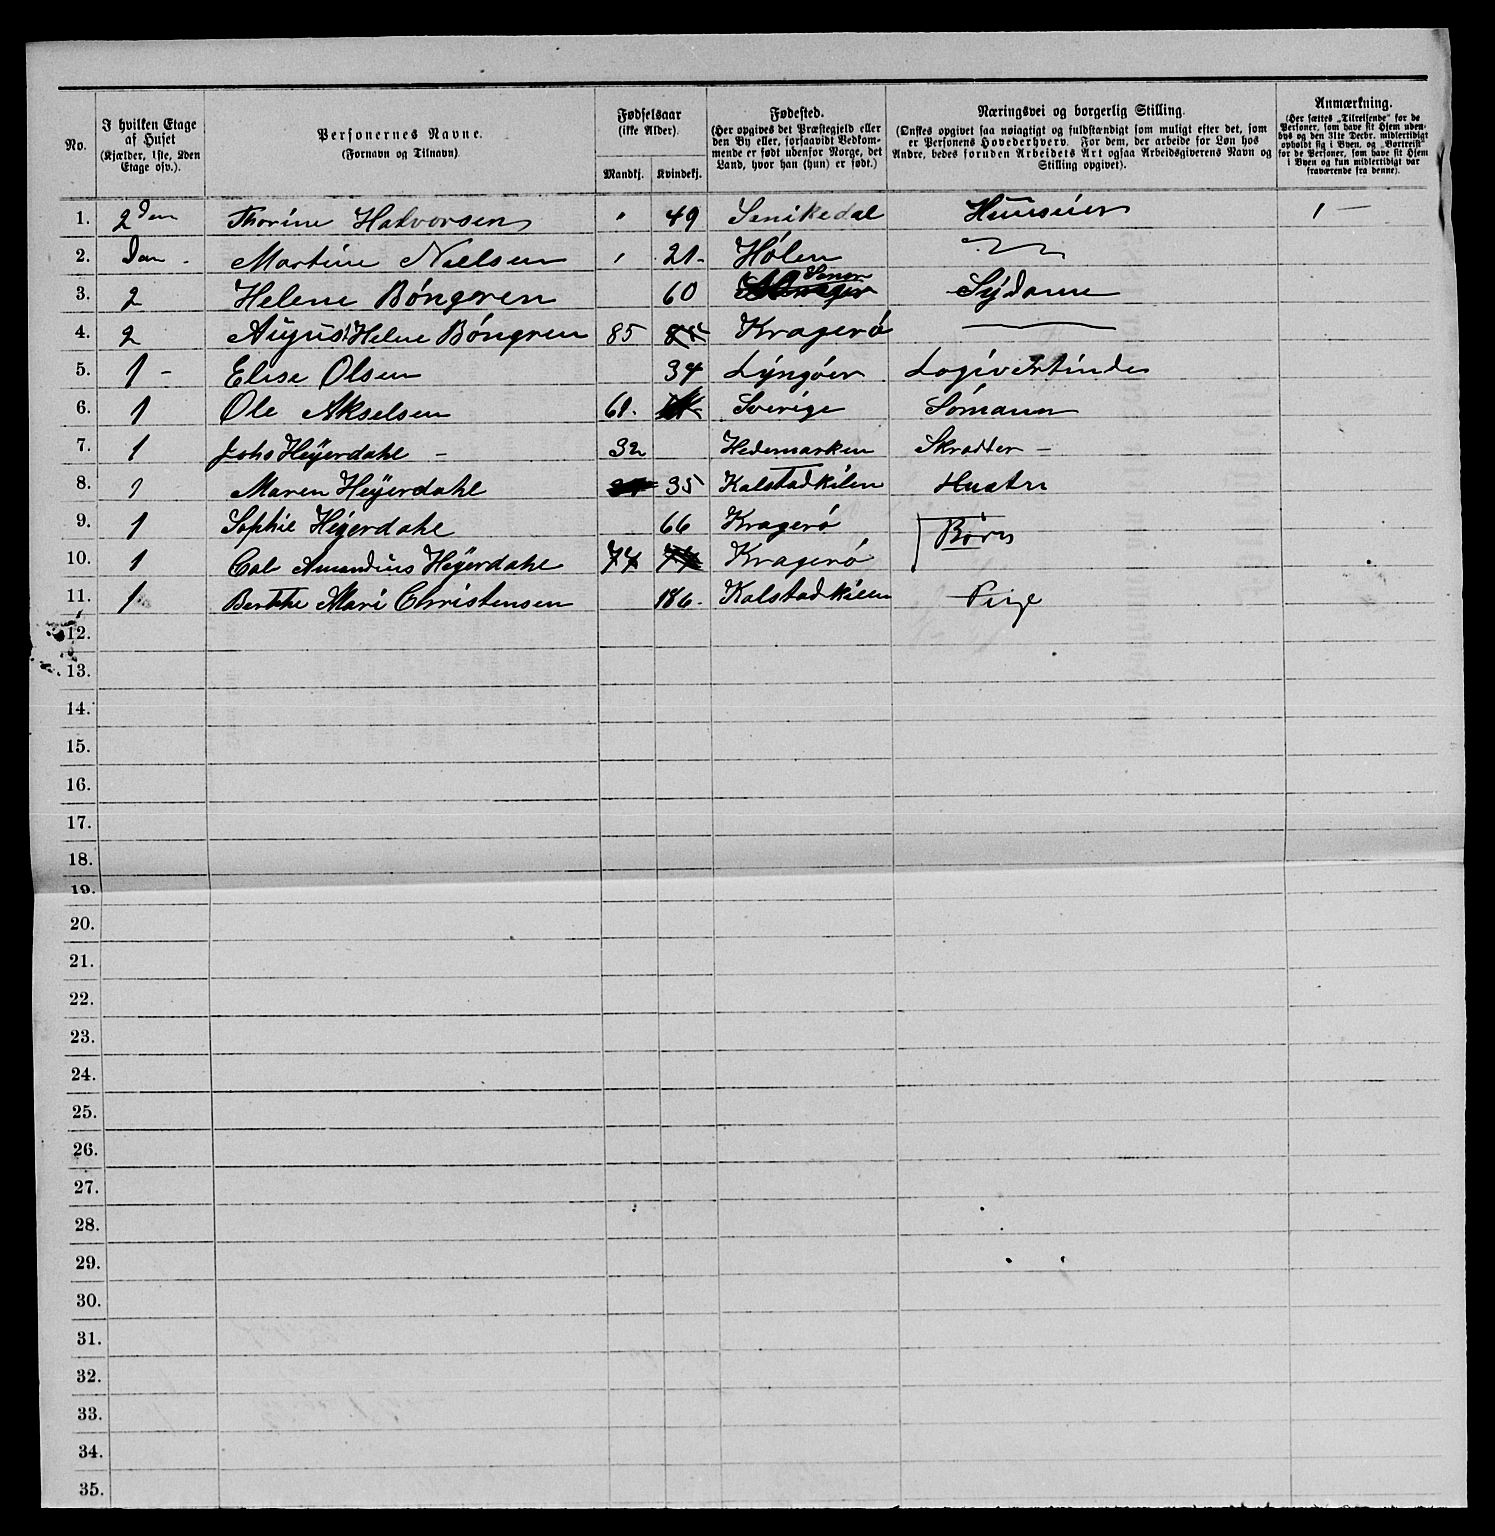 No. I hvilken Etage af Huset (Kjælder, 1ste, 2den Etage osv.). Personernes Navne. (Fornavn og Tilnavn). Fødselsaar (ikke Alder). Mandkj. Kvindekj. Fødested. (Her opgives det Præstegjeld eller den By eller, forsaavidt Vedkommende er født udenfor Norge, det Land, hvor han (hun) er født.) Næringsvei og borgerlig Stilling. (Ønskes opgivet saa nøiagtigt og fuldstændigt som muligt efter det, som er Personens Hovederhverv. For dem, der arbeide for Løn hos Andre, bedes foruden Arbeidets Art ogsaa Arbeidsgiverens Navn og Stilling opgivet). Anmærkning. (Her sættes „Tilreisende" for de Personer, som have sit Hjem udenbys og den 31te Decbr. midlertidigt opholdt sig i Byen, og „Bortreist" for de Personer, som have sit Hjem i Byen og kun midlertidigt var fraværende fra denne).
1. 2den Thorine Halvorsen " 49 Sanikedal Huuseier 1 —
2. Martine Nielsen " 21. Holen
3. 2 Helene Bóngeren 60 Sýdame
4. 2 August Helue Bóngren 85 Krageró
5. 1 – Elise Olsen 34 Lýngóer Logivertinde
6. 1 Ole Akselsen 61. Sverige Sómann
7. 1 Johs Heÿerdahl – 32 Hedemarken Skrædder –
8. 1 Maren Heÿerdahl 35 Kalstadkilen Hustru
9. 1 Sophie Heÿerdahl 66 Krageró Børn
10. 1 Cal Amandius Heÿerdahl 74 74 Krageró
11. 1 Berthe Mari Christensen 186. Kalstadkilen Pige
12.
13.
14.
15.
16.
17.
18.
19.
20.
21.
22.
23.
24.
25.
26.
27.
28.
29.
30.
31.
32.
33.
34.
35.